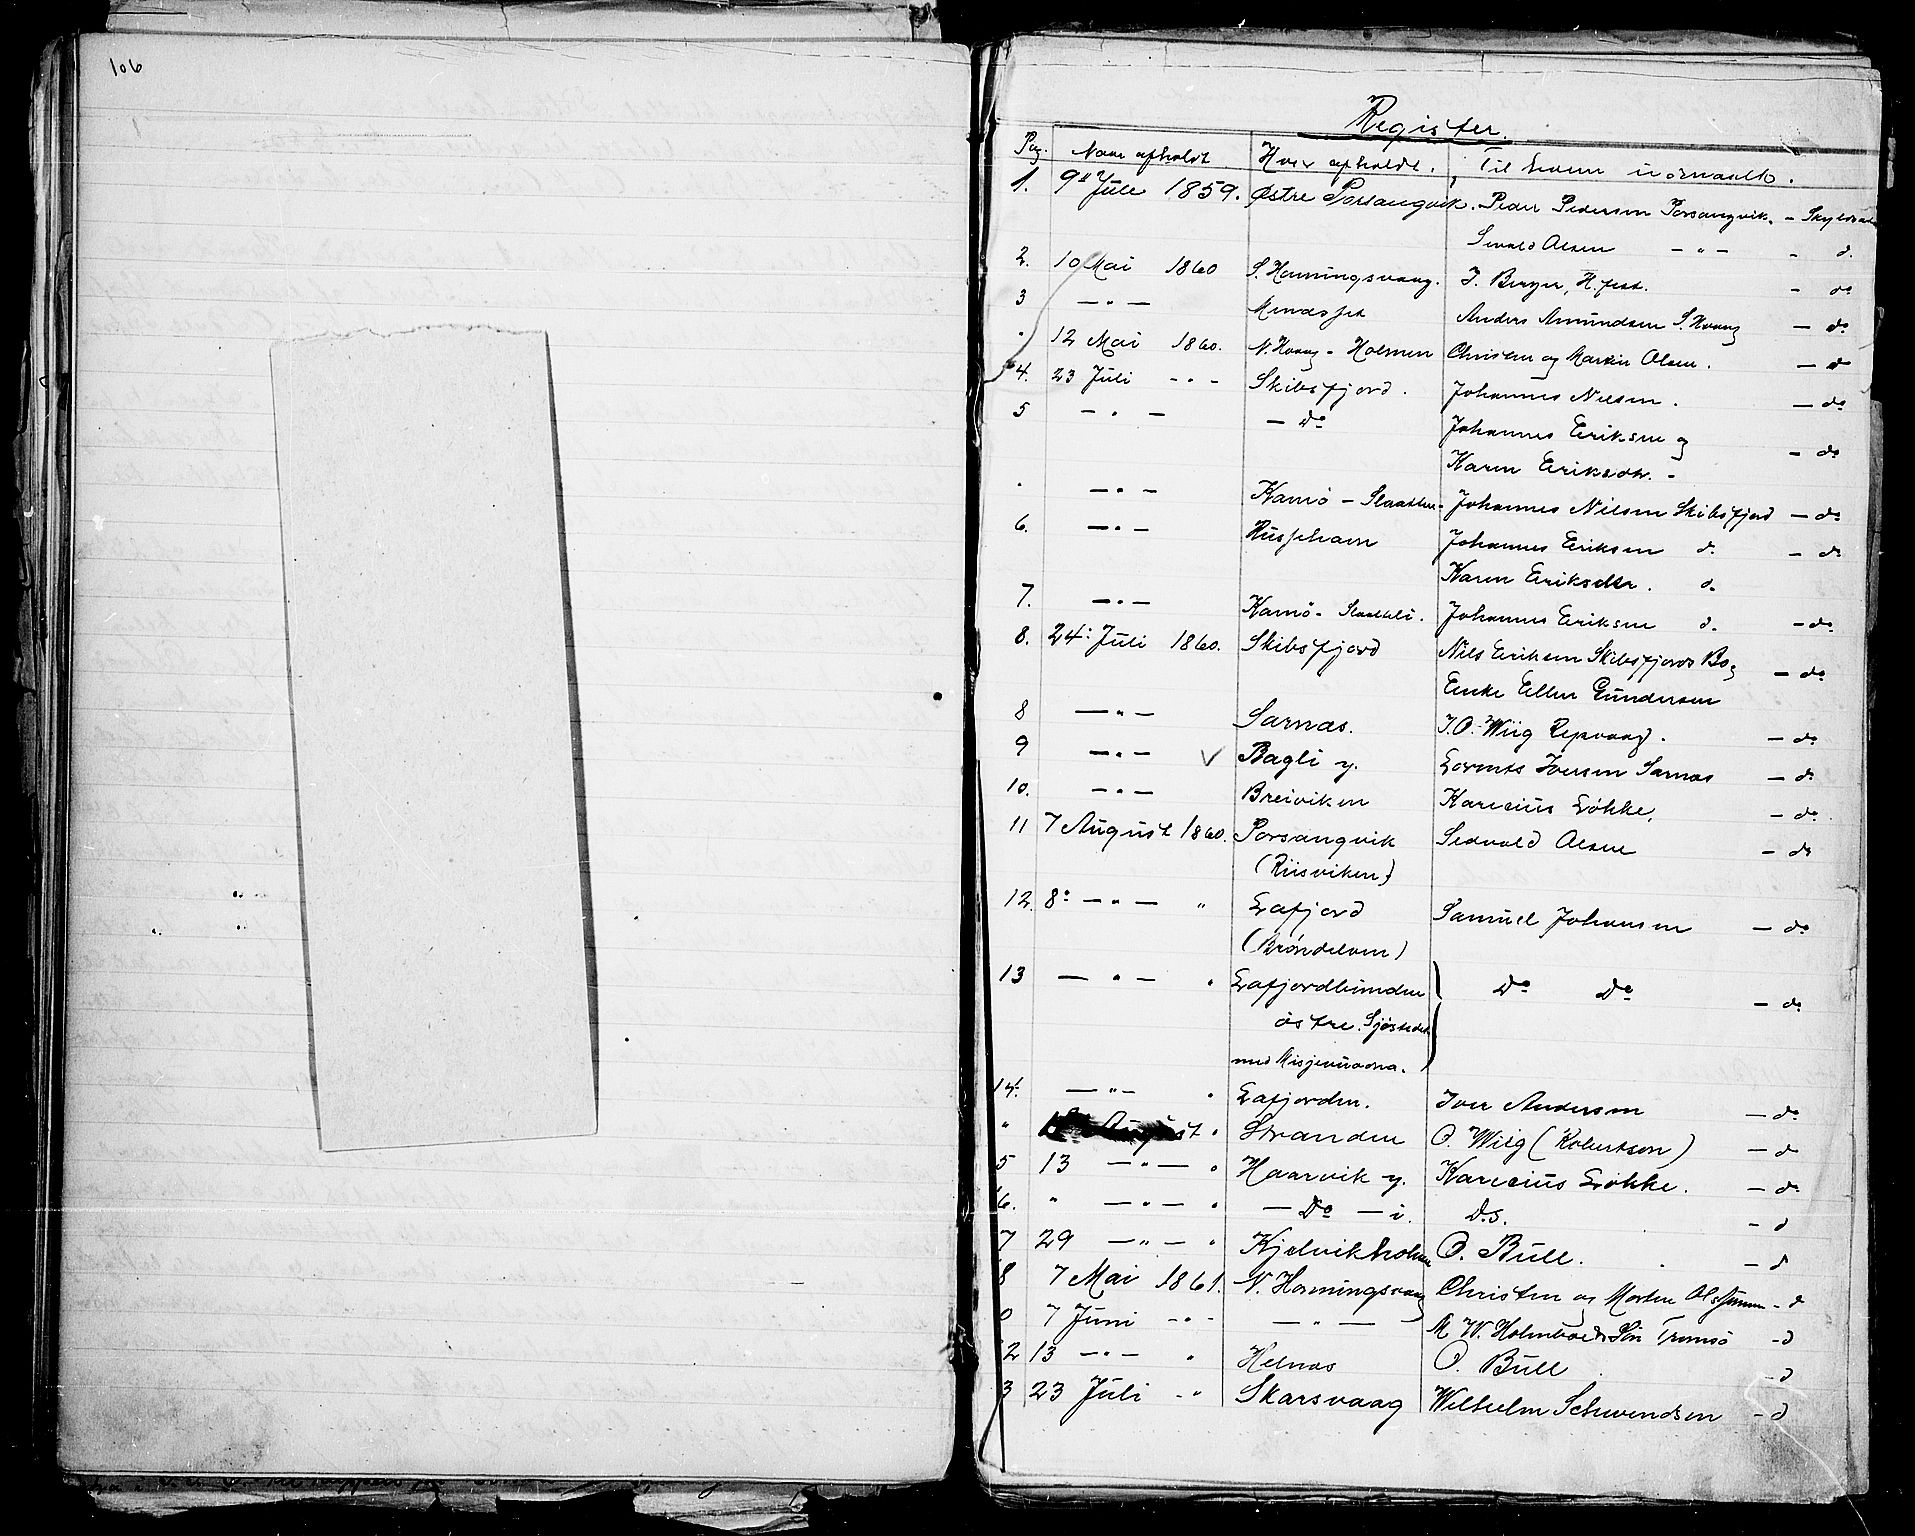 106
Register.
Pag. Naar afholdt Hvor afholdt. Til hvem
1. 9de Juli 1859. Østre Porsangvik. Peder Pedersen Porsangvik. -
Sivald Olsen - " - - d.
2. 10 Mai 1860 S. Honningsvaag. J. Berger, H.fest. - do
3 - " - Anders Amundsen S. Hvaag - do
" 12 Mai 1860. N. Hvaag - Holmen Christen og Martin Olsen. - d
4. 23 Juli - " - Skibsfjord. Johannes Nilsen. - do
5 - " - - Do Johannes Eriksen og
Karen Eriksdtr. - - do
" - " - Kamö - Slaatten - Johannes Nilsen Skibsfjord - do
6. - " - Johannes Eriksen d. - do
Karen Eriksdtr. d.
7. - " - Kamö - Johannes Eriksen d. - do
8. 24: Juli 1860. Skibsfjord Nils Eriksen Skibsfjord Bo og
Enke Ellen Gundersen - do
8 - " - Sarnæs. J.O. Wiig Repvaag. - do
9 - " - V Bagli y. Lorents Iversen Sarnæs - do
10. - " - Breiviken Karelius Løkke. - do
11 7 August 1860. Porsangvik Sedvald Olsen - do
(Riisviken)
12. 8: - " - " Lafjord Samuel Johansen - do
13 - " - " Lafjordbunden Do Do - do
östre. Sjøstedet
med
14. - " - " Lafjorden. Iver Andersen - do
" August " Stranden O. Wiig (Robertson) - do
5 13 - " - " Haarvik y. Karelius Løkke. - do
6. " - " - " - Do - i. Do. - d
7 29 - " - " Kjelvikholmen O. Bull. - d
8 7 Mai 1861. N. Honningsvaag Christen og Morten Olsen - d
0 7 Juni - " - - " - M. W. Holmboe & Søn Tromsö - d
2 13 - " - " Helnæs O. Bull - d
3 23 Juli - " Skarsvaag Wilhelm Schwendsen - d